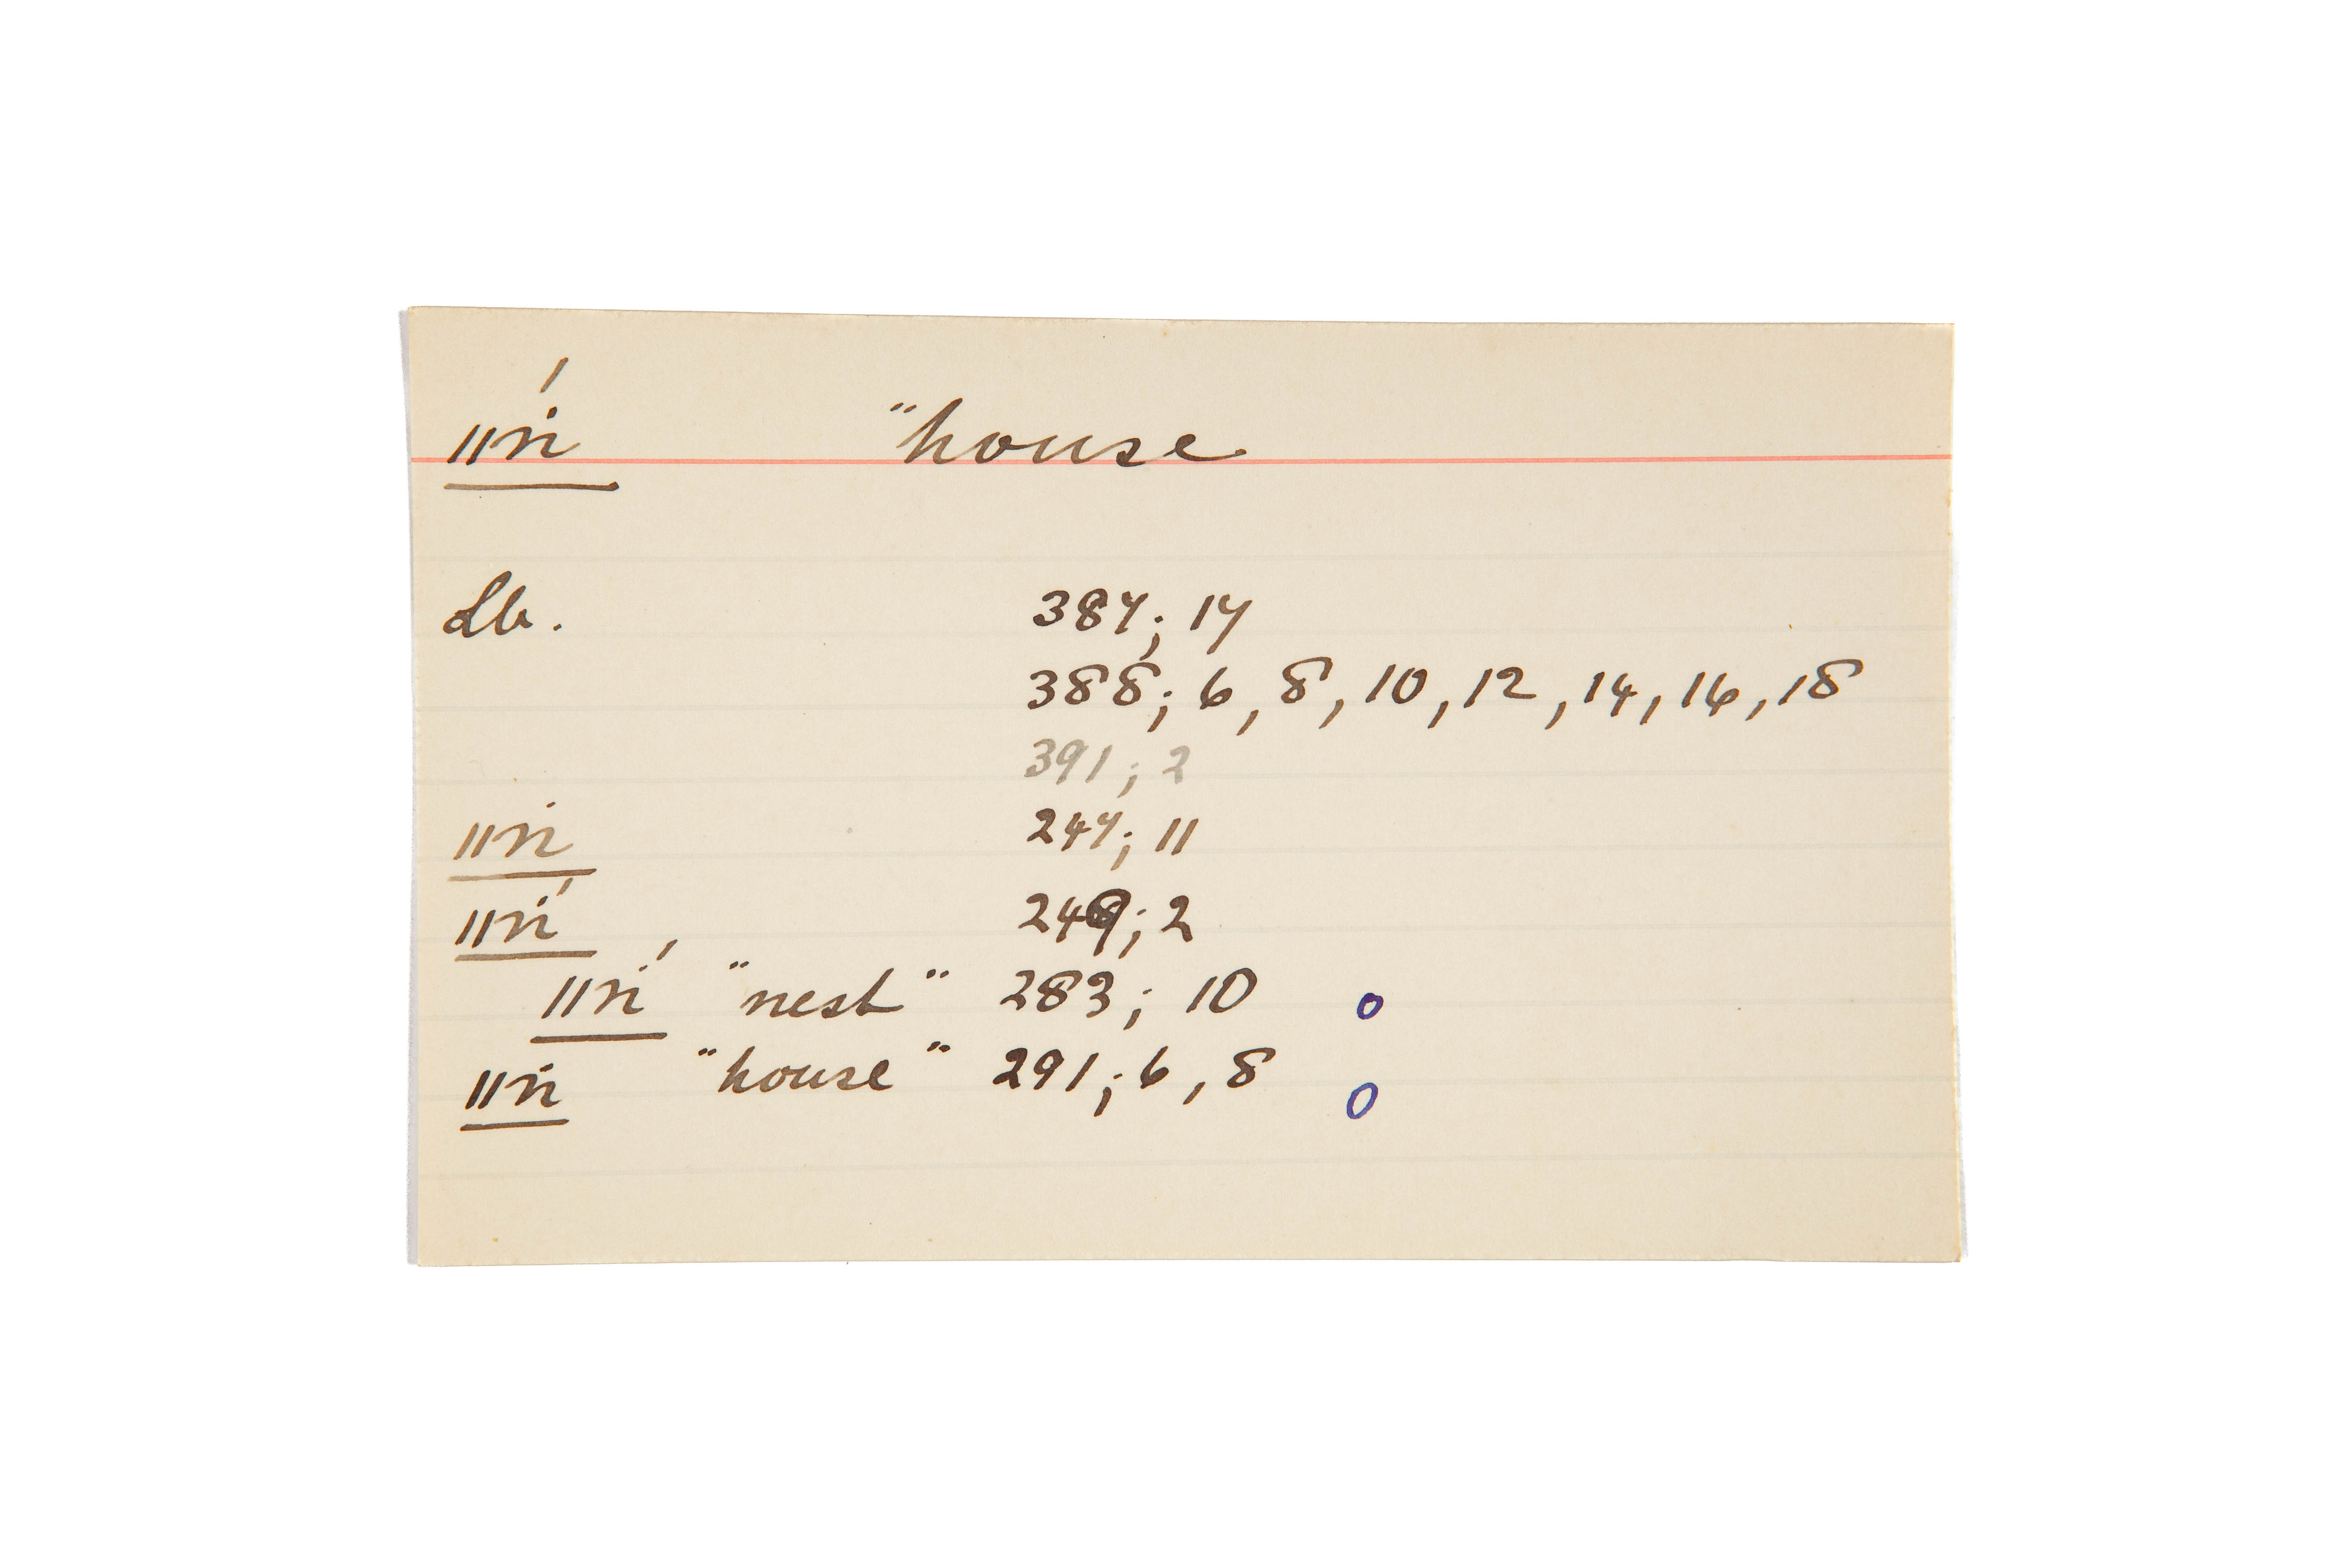 ǁṅ́ "house
Lb. 387; 17
388; 6, 8, 10, 12, 14, 16, 18
391; 2
ǁṅ 247; 11
ǁṅ́ 249; 2
ǁṅ́ "nest" 283; 10 o
ǁṅ "house" 291; 6, 8 o